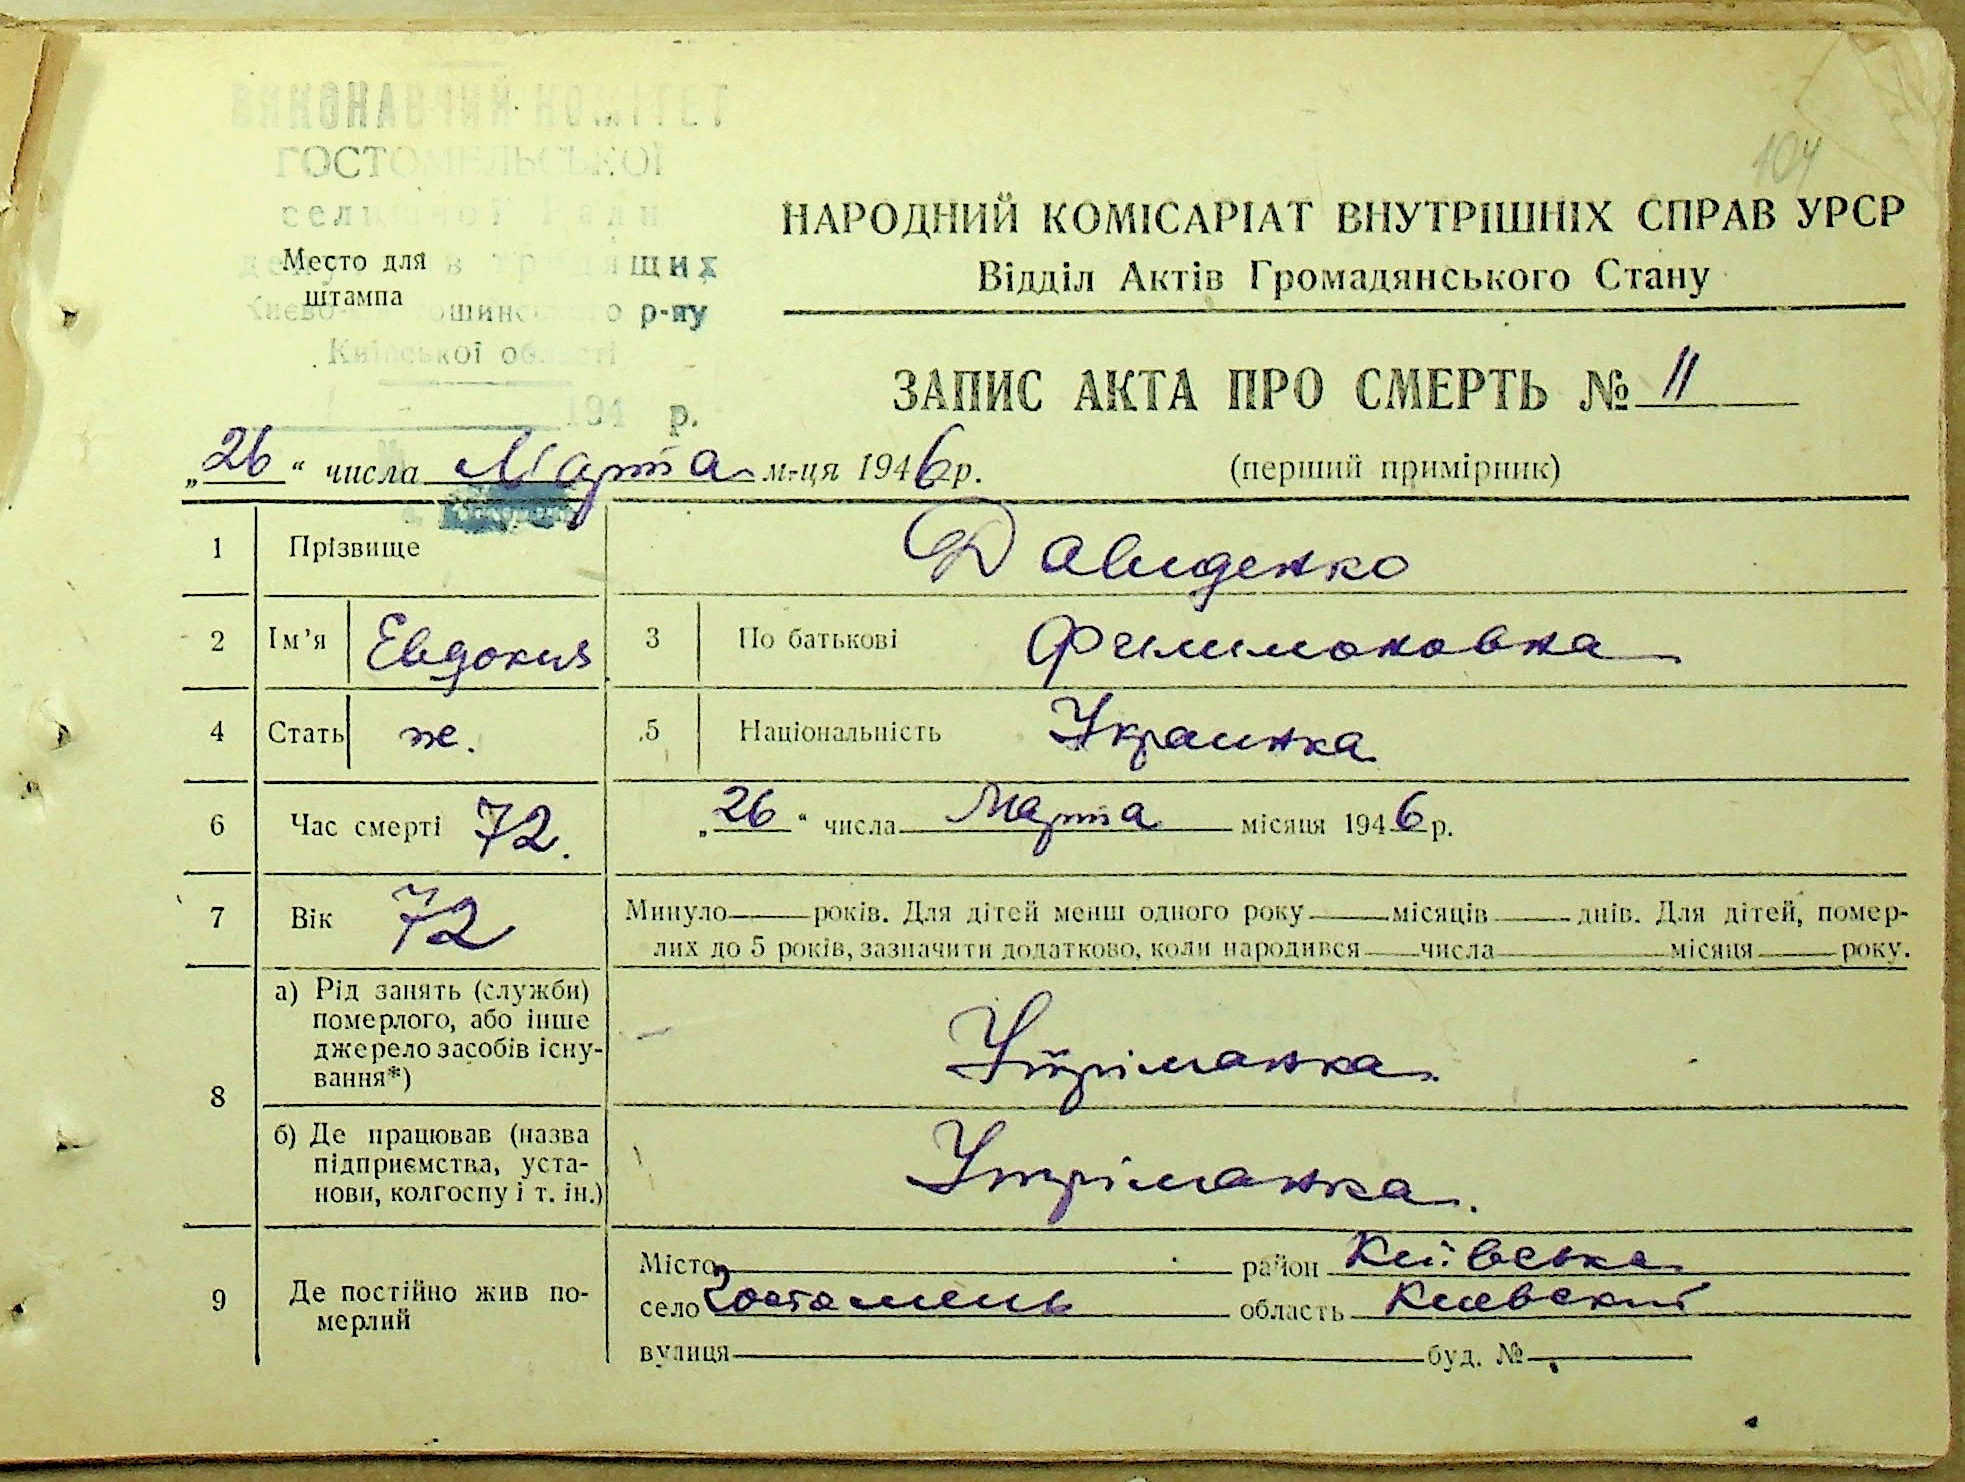 ВИКОНАВЧИЙ КОМІТЕТ
ГОСТОМЕЛЬСЬКОЇ
селищної Ради
депутатів трудящих
Києво-Святошинського р-ну
Київської області
194 р.
Место для
штампа
104
НАРОДНИЙ КОМІСАРІАТ ВНУТРІШНІХ СПРАВ УРСР
Відділ Актів Громадянського Стану
ЗАПИС АКТА ПРО СМЕРТЬ № 11
„26“ числа Марта м-ця 1946 р.
(перший примірник)
1 Прізвище Давиденко
2 Ім’я Евдокия 3 По батькові Филимоновна
4 Стать ж. 5 Національність Украинка
6 Час смерті 72. „26“ числа Марта місяця 1946 р.
7 Вік 72 Минуло років. Для дітей менш одного року місяців днів. Для дітей, помер-
лих до 5 років, зазначити додатково, коли народився числа місяця року.
8 а) Рід занять (служби)
померлого, або інше
джерело засобів існу-
вання*)
Утріманка.
б) Де працював (назва
підприємства, уста-
нови, колгоспу і т. ін.)
Утріманка.
9 Де постійно жив по-
мерлий
Місто район Київська
село Гостомень область Киевский
вулиця буд. №